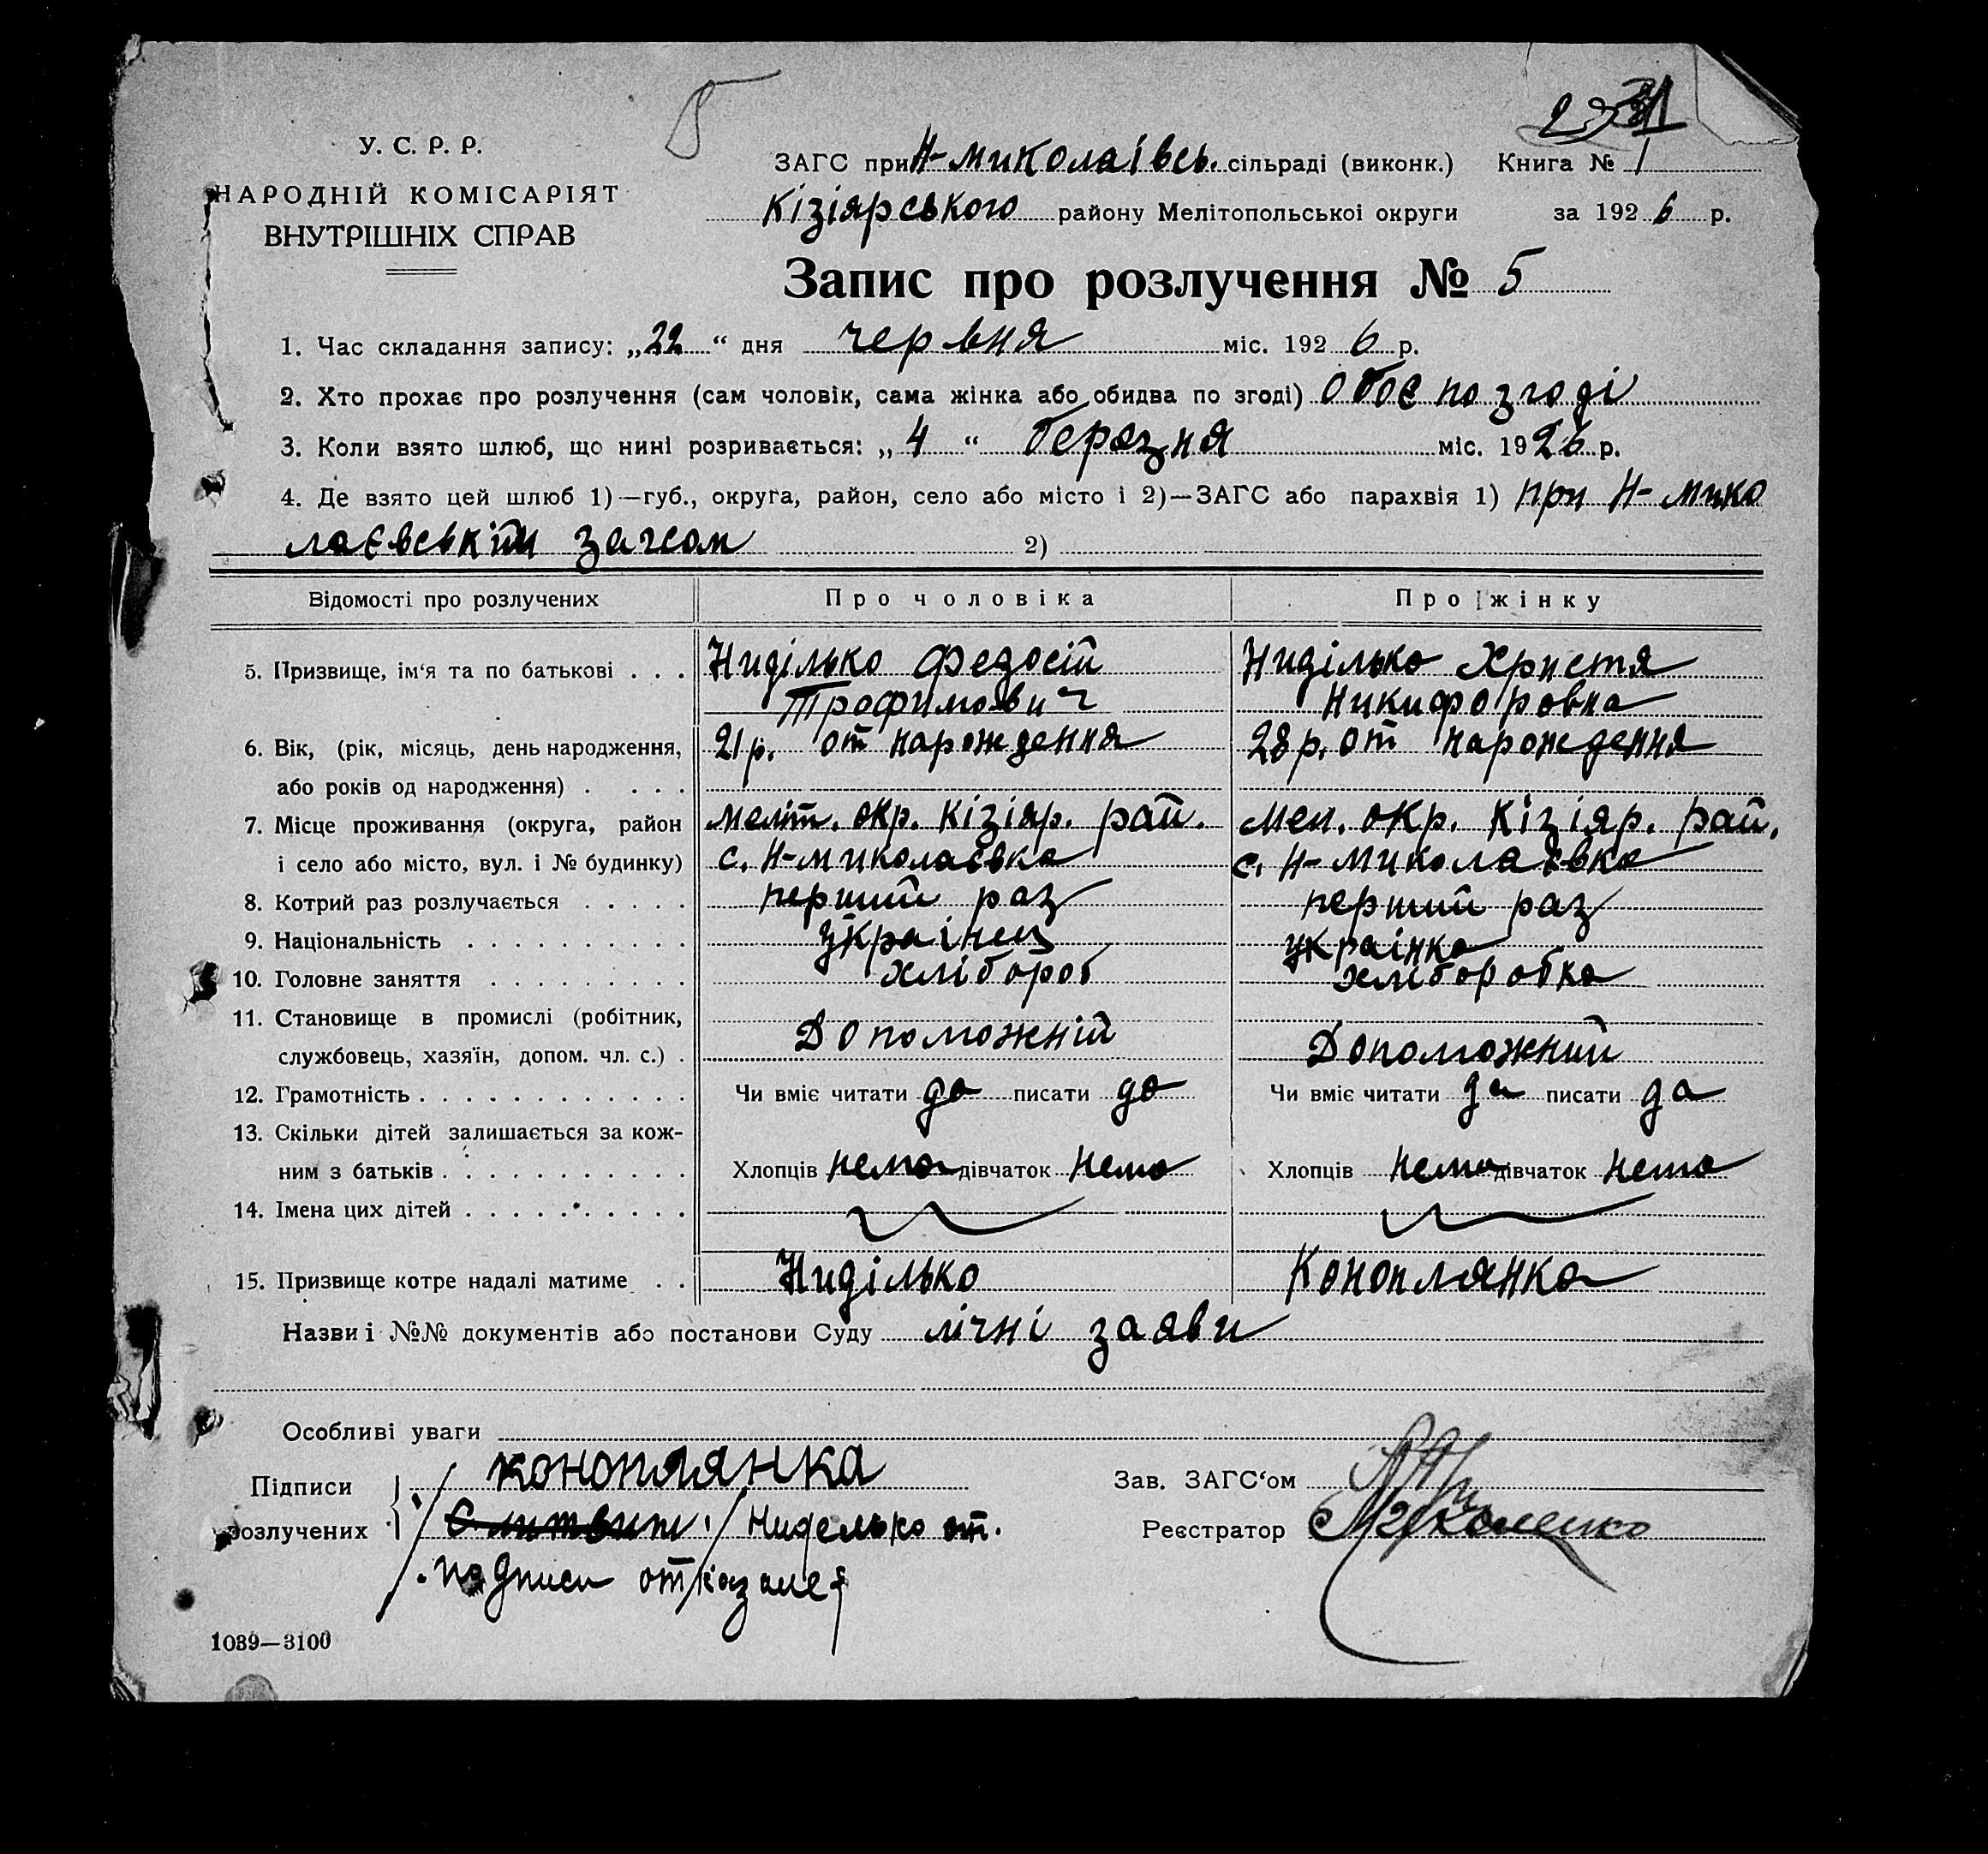 5
У. С. Р. Р.
НАРОДНІЙ КОМІСАРІЯТ
ВНУТРІШНІХ СПРАВ
ЗАГС при Н-миколаівсь. сільраді (виконк.) Книга № 1
Кізіярського району Мелітопольської округи за 1926 р.
Запис про розлучення № 5
1. Час складання запису: „22“ дня червня міс. 1926 р.
2. Хто прохає про розлучення (сам чоловік, сама жінка або обидва по згоді) обоє по згоді
3. Коли взято шлюб, що нині розривається: „4“ березня міс. 1926 р.
4. Де взято цей шлюб 1)—губ., округа, район, село або місто і 2)—ЗАГС або парахвія 1) при Н-мико
лаєвським загсом 2)
Відомості про розлучених Про чоловіка Про жінку
5. Призвище, ім‘я та по батькові . . . Ниділько Федосій Ниділько Христя
Трофимович Никифоровна
6. Вік, (рік, місяць, день народження, 21р. от нарождення 28р. от нарождення
або років од народження) . . . .
7. Місце проживання (округа, район Меліт. окр. Кізіяр. рай. Мел. окр. Кізіяр. рай.
і село або місто, вул. і № будинку) с. Н-миколаєвка с. Н-миколаєвка
8. Котрий раз розлучається . . . . . перший раз перший раз
9. Національність . . . . . . . . . . украінец украінка
10. Головне заняття . . . . . . . . . хлібороб хлібооробка
11. Становище в промислі (робітник, Допоможній Допоможний
службовець, хазяїн, допом. чл. с.) .
12. Грамотність . . . . . . . . . . . . Чи вміє читати да писати да Чи вміє читати да писати да
13. Скільки дітей залишається за кож-
ним з батьків . . . . . . . . . . . Хлопців нема дівчаток нема Хлопців нема дівчаток нема
14. Імена цих дітей . . . . . . . . . .
15. Призвище котре надалі матиме . . Ниділько Коноплянка
Назви і №№ документів або постанови Суду лічні заяви
Особливі уваги
Підписи коноплянка Зав. ЗАГС‘ом
розлучених Ниделько от. Реєстратор
подписи отказалсяя
1039—3100